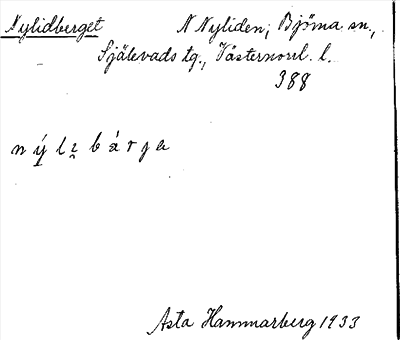 Nylidberget N Nyliden, Björna sn.,
Själevads tg., Västernorrl. l.
388
Asta Hammarberg 1933